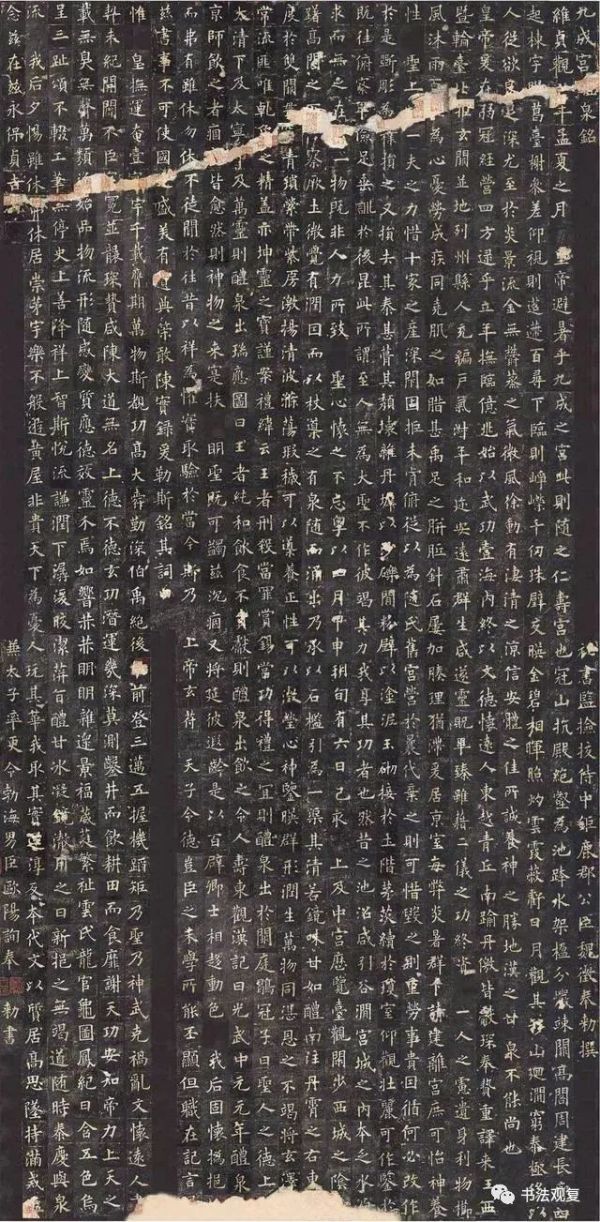 九成宮泉銘 秘書監撿挍侍中鉅鹿郡公臣魏徵奉勑撰
維貞觀年孟夏之月皇帝避暑乎九成之宮此則隨之仁壽宮也冠山抗殿絕壑為池跨水架楹分巖竦闕高閣周建長廊四
起棟宇膠葛臺榭參差仰視則迢遰百尋下臨則崢嶸千仞珠璧交暎金碧相暉照灼雲霞蔽虧日月觀其移山迴澗窮泰極侈以
人從欲良足深尤至於炎景流金無鬱蒸之氣微風徐動有淒清之涼信安體之佳所誠養神之勝地漢之甘泉不能尚也
皇帝爰在弱冠經營四方逮乎立年撫臨億兆始以武功壹海內終以文德懷遠人東越青丘南踰丹徼皆獻琛奉贄重譯來王西
暨輪臺北拒玄闕並地列州縣人充編戶氣淑年和迩安遠肅群生咸遂靈貺畢臻雖藉二儀之功終資一人之慮遺身利物櫛
風沐雨為心憂勞成疾同堯肌之如腊甚禹足之胼胝針石屢加腠理猶滯爰居京室每弊炎暑群下請建離宮庶可怡神養
性聖上一夫之力惜十家之產深閉固拒未肯俯從以為隨氏舊宮營於曩代棄之則可惜毀之則重勞事貴因循何必改作
於是斲彫為樸損之又損去其泰甚葺其頹壞雜丹墀以沙礫間粉壁以塗泥玉砌接於土階茅茨續於瓊室仰觀壯麗可作鑒於
既往俯察卑儉足垂訓於後昆此所謂至人無為大聖不作彼竭其力我享其功者也然昔之池沼咸引谷澗宮城之內本乏水源
求而無之在一物既非人力所致聖心懷之不忘粵以四月甲申朔旬有六日己亥上及中宮歷覽臺觀閑步西城之陰
躊躇高閣之下俯察厥土微覺有潤因而以杖導之有泉隨而涌出乃承以石檻引為一渠其清若鏡味甘如醴南注丹霄之右東流
度於雙闕貫穿青瑣縈帶紫房激揚清波滌蕩瑕穢可以導養正性可以澂瑩心神鑒暎群形潤生萬物同湛恩之不竭將玄澤之
常流匪唯乾象之精蓋亦坤靈之寶謹案禮緯云王者刑殺當罪賞錫當功得禮之宜則醴泉出於闕庭鶡冠子曰聖人之德上及
太清下及太寧中及萬靈則醴泉出瑞應圖曰王者純和飲食不貢獻則醴泉出飲之令人壽東觀漢記曰光武中元元年醴泉出
京師飲之者痼疾皆愈然則神物之來寔扶明聖既可蠲茲沉痼又將延彼遐齡是以百辟卿士相趨動色我后固懷撝挹推
而弗有雖休勿休不徒聞於往昔以祥為懼實取驗於當今斯乃上帝玄符天子令德豈臣之末學所能丕顯但職在記言屬
茲書事不可使國之盛美有遺典策敢陳實錄爰勒斯銘其詞曰
惟皇撫運奄壹寰宇千載膺期萬物斯覩功高大舜勤深伯禹絕後承前登三邁五握機蹈矩乃聖乃神武克禍亂文懷遠人書
契未紀開闢不臣冠冕並襲琛贄咸陳大道無名上德不德玄功潛運幾深莫測鑿井而飲耕田而食靡謝天功安知帝力上天之
載無臭無聲萬類資始品物流形隨感變質應德效靈介焉如響赫赫明明雜遝景福葳蕤繁祉雲氏龍官龜圖鳳紀日含五色烏
呈三趾頌不輟工筆無停史上善降祥上智斯悅流謙潤下潺湲皎潔蓱旨醴甘冰凝鏡澈用之日新挹之無竭道隨時泰慶與泉
流我后夕惕雖休弗休居崇茅宇樂不般遊黃屋非貴天下為憂人玩其華我取其實還淳反本代文以質居高思墜持滿戒溢
念茲在茲永保貞吉 兼太子率更令勃海男臣歐陽詢奉勑書
书法观复